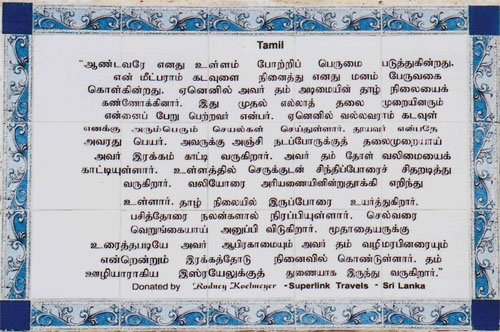 Tamil
"ஆண்டவரே எனது உள்ளம் போற்றிப் பெருமை படுத்துகின்றது.
என் மீட்பராம் கடவுளை நினைத்து எனது மனம் பேருவகை
கொள்கின்றது. ஏனெனில் அவர் தம் அடிமையின் தாழ் நிலையைக்
கண்ணோக்கினார். இது முதல் எல்லாத் தலை முறையினரும்
என்னைப் பேறு பெற்றவர் என்பர். ஏனெனில் வல்லவராம் கடவுள்
எனக்கு அரும்பெரும் செயல்கள் செய்துள்ளார். தூயவர் என்பதே
அவரது பெயர். அவருக்கு அஞ்சி நடப்போருக்குத் தலைமுறையாய்
அவர் இரக்கம் காட்டி வருகிறார். அவர் தம் தோள் வலிமையைக்
காட்டியுள்ளார். உள்ளத்தில் செருக்குடன் சிந்திப்போரைச் சிதறடித்து
வருகிறார். வலியோரை அரியணையினின்றுதூக்கி எறிந்து
உள்ளார். தாழ் நிலையில் இருப்போரை உயர்த்துகிறார்.
பசித்தோரை நலன்களால் நிரப்பியுள்ளார். செல்வரை
வெறுங்கையாய் அனுப்பி விடுகிறார். மூதாதையருக்கு
உரைத்தபடியே அவர் ஆபிரகாமையும் அவர் தம் வழிமரபினரையும்
என்றென்றும் இரக்கத்தோடு நினைவில் கொண்டுள்ளார். தம்
ஊழியராகிய இஸ்ரயேலுக்குத் துணையாக இருந்து வருகிறார்."
Donated by Rodney Koelmeyer -Superlink Travels - Sri Lanka